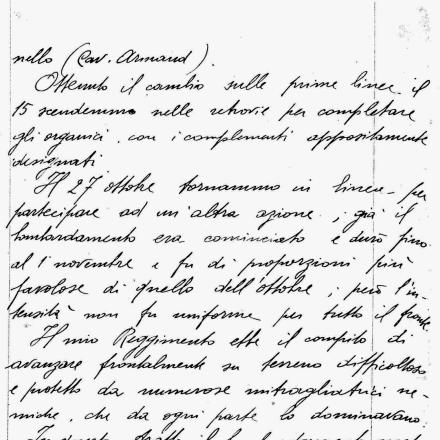 nello (Cav. Armand).
Ottenuto il cambio sulle prime linee il
15 scendemmo nelle retrovie per completare
gli organici, con i complementi appositamente
designati.
Il 27 ottobre tornammo in linea - per
partecipare ad un'altra azione; già il
bombardamento era cominciato e durò fino
al 1° novembre e fu di proporzioni più
favolose di quello dell'ottobre; però l'in-
tensità non fu uniforme per tutto il fronte.
Il mio Reggimento ebbe il compito di
avanzare frontalmente su terreno difficoltoso
e protetto da numerose mitragliatrici ne-
miche, che da ogni parte lo dominavano.